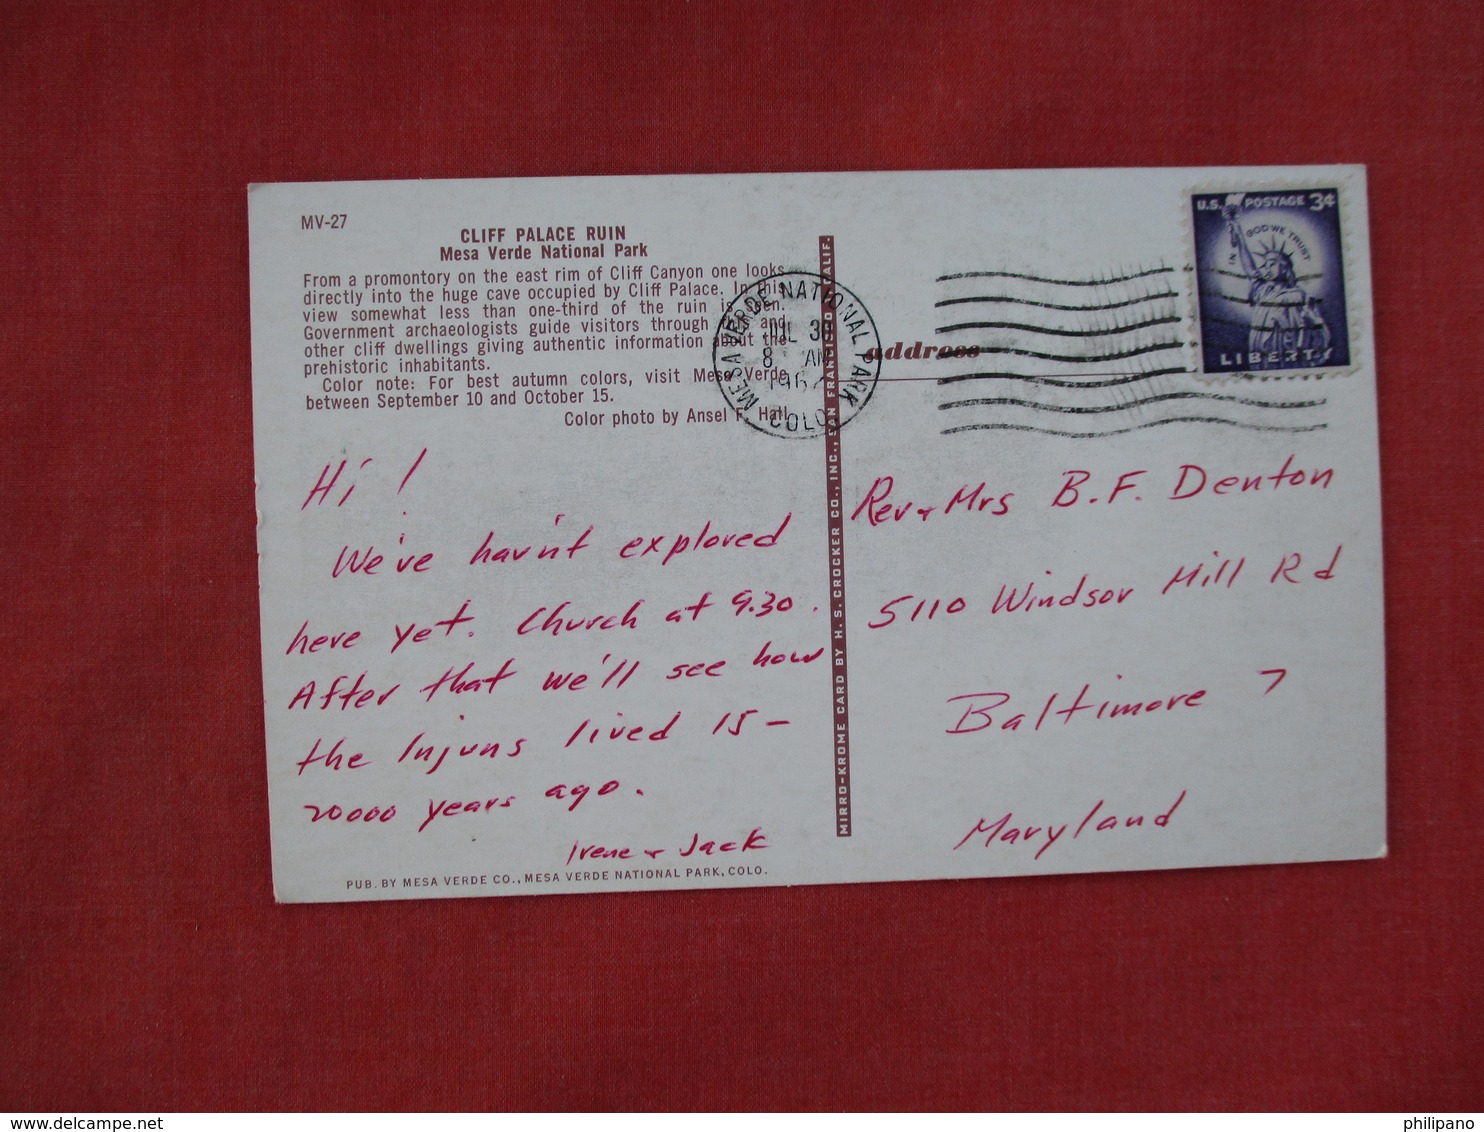 MV-27
CLIFF PALACE RUIN
Mesa Verde National Park
From a promontory on the east rim of Cliff Canyon one looks
directly into the huge cave occupied by Cliff Palace. In this
view somewhat less than one-third of the ruin is seen.
Government archaeologists guide visitors through and
other cliff dwellings giving authentic information about the
prehistoric inhabitants.
Color note: For best autumn colors, visit Mesa Verde
between September 10 and October 15.
Color photo by Ansel F. Hall
Hi!
We've hav'nt explored
here yet. Church at 9.30.
After that we'll see how
the Injuns lived 15-
20000 years ago.
Irene + Jack
PUB. BY MESA VERDE CO., MESA VERDE NATIONAL PARK, COLO.
MIRRO-KROME CARD BY H. S. CROCKER CO., INC., SAN FRANCISCO CALIF.
MESA VERDE NATIONAL PARK
JUL 30
8 AM
COLO
U.S. POSTAGE 3¢
IN GOD WE TRUST
LIBERTY
address
Rev + Mrs B. F. Denton
5110 Windsor Mill Rd
Baltimore 7
Maryland
philipano